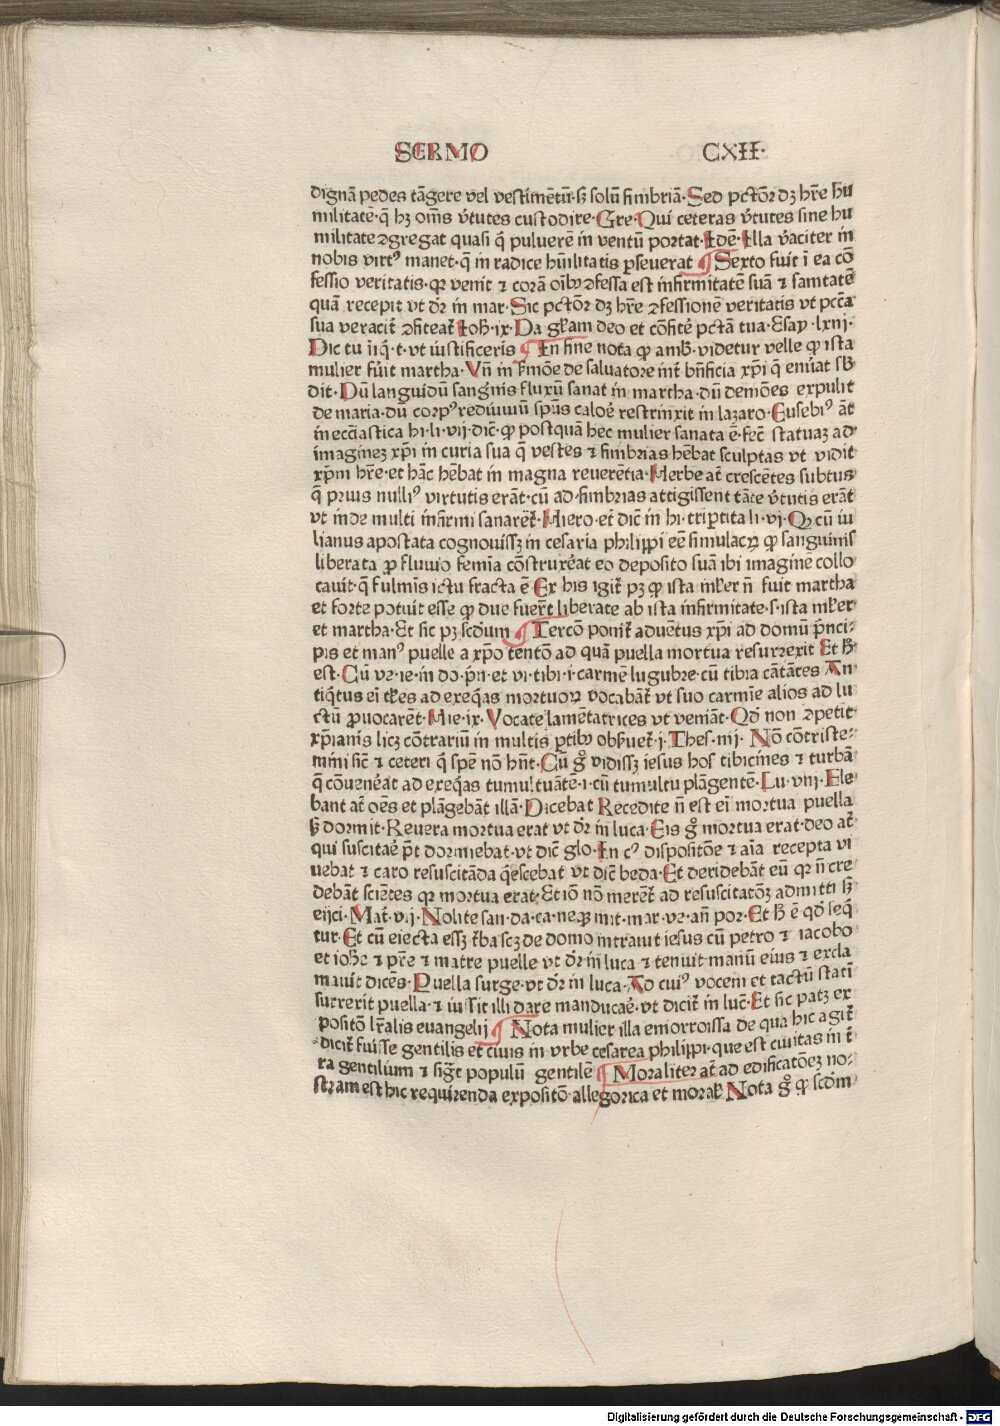 SERMO CXII·
dignā pedes tāgere vel vestimētū· sꝫ solū fimbriā· Sed pctōꝛ dꝫ hr̄e hu
militatē· q̄ hꝫ om̄s v̄tutes custodire· Gre· Qui ceteras v̄tutes sine hu
militate ꝯgregat quasi q̄ puluerē in ventū portat· Idē· Illa v̄aciter in
nobis virtꝰ manet· q̄ in radice hūilitatis ꝑseuerat ¶ Sexto fuit ī ea cō
fessio veritatis· qꝛ venit ⁊ corā oīb9 ꝯfessa est infirmitatē suā ⁊ sanitatē
quā recepit vt dr̄ in mar· Sic pctōꝛ dꝫ hr̄e ꝯfessionē veritatis vt pcc̄a
sua veracit̄ ꝯfiteat̄ Ioh̄· ix· Da gl̄iam deo et cōfitē pctā tua· Esay· lxiij·
Dic tu īiq̄· t· vt iustificeris ¶ In fine nota ꝙ amb̄· videtur velle ꝙ ista
mulier fuit martha· Vn̄ in ẜmōe de saluatore int̄ bn̄ficia xp̄i q̄ enūat sb̄
dit· Dū languidū sangūis fluxū sanat in martha· dū demōes expulit
de maria· dū corpꝰ rediuiuū spūs caloē restrinxit in lazaro· Eusebiꝰ āt
in ecc̄iastica hi· li· vij· dic̄· ꝙ postquā hec mulier sanata ē· fec̄ statuaꝫ ad
imagineꝫ xp̄i in curia sua q̄ vestes ⁊ fimbrias hēbat sculptas vt vidit
xp̄m hr̄e· et hāc hēbat in magna reuerētia· Herbe at̄ crescētes subtus
q̄ prius nulliꝰ virtutis erāt· cū ad fimbrias attigissent tāte v̄tutis erāt
vt inde multi infirmi sanarēt̄· Hiero· et dic̄ in hi· triꝑtita li· vj· Qꝫ cū iu
lianus apostata cognouissꝫ in cesaria philippi eē simulacꝝ ꝙ sanguinis
liberata ꝓ fluuio femīa cōstruxēat eo deposito suā ibi imaginē collo
cauit· q̄ fulmīs ictu fracta ē Ex his igit̄ pꝫ ꝙ ista ml̄er n̄ fuit martha
et forte potuit esse ꝙ due fuer̄t liberate ab ista infirmitate· s· ista ml̄er
et martha· Et sic pꝫ scd̄um ¶ Tercō ponit̄ aduētus xp̄i ad domū p̄nci-
pis et manꝰ puelle a xp̄o tentō ad quā puella mortua resurrexit Et h̄
est· Cū ve· ie· in do· p̄n· et vi· tibi· i· carmē lugubre· cū tibia cātātes An
tiq̄tus ei t̄les ad exeq̄as mortuoꝝ vocabāt̄ vt suo carmīe alios ad lu
ctū ꝓuocarēt· Hie· ix· Vocate lamētatrices vt veniāt· Qd̄ non ꝯpetit
xp̄ianis licꝫ cōtrariū in multis ꝑtib9 obẜuet̄· j· Thes· iiij· Nō cōtriste-
mini sic̄ ⁊ ceteri q̄ spē nō hn̄t· Cū g̊ vidissꝫ iesus hos tibicines ⁊ turbā
q̄ cōuenēat ad exeq̄as tumultuātē· i· cū tumultu plāgentē· Lu· viij· Fle
bant at̄ oēs et plāgebāt illā· Dicebat Recedite n̄ est ei mortua puella
sꝫ dormit· Reuera mortua erat vt dr̄ in luca· Eis g̊ mortua erat· deo at̄
qui suscitaē p̄t dormiebat· vt dic̄ glo· In cꝰ dispositōe ⁊ aīa recepta vi
uebat ⁊ caro resuscitāda q̄escebat vt dic̄ beda· Et deridebāt eū qꝛ n̄ cre
debāt sciētes qꝛ mortua erat· Et iō nō merēt̄ ad resuscitatōꝫ admitti sꝫ
eijci· Mat̄· vij· Nolite san· da· ca· neqꝫ mit· mar· ve· an̄ por· Et h̄ ē qd̄ seq̄
tur· Et cū eiecta essꝫ t̄ba scꝫ de domo intrauit iesus cū petro ⁊ iacobo
et ioh̄e ⁊ pr̄e ⁊ matre puelle vt dr̄ in luca ⁊ tenuit manū eius ⁊ excla
mauit dicēs· Puella surge· vt dr̄ in luca· Ad cuiꝰ vocem et tactū statī
surrexit puella· ⁊ iussit illi dare manducaē· vt dicit̄ in luc̄· Et sic patꝫ ex
positō lr̄alis euangelij ¶ Nota mulier illa emorroissa de qua hic agit̄
dicit̄ fuisse gentilis et ciuis in vrbe cesarea philippi· que est ciuitas in t̄
ra gentilium ⁊ sig̅t populū gentilē ¶ Moraliter at̄ ad edificatōeꝫ no-
stram est hic requirenda expositō· allegorica et moral̄ Nota g̊ ꝙ scd̄m
Digitalisierung gefördert durch die Deutsche Forschungsgemeinschaft - DFG